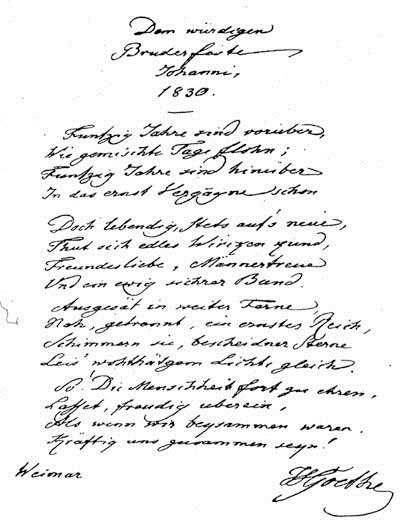 Dem würdigen
Bruderfeste
Johanni,
1830.
Funfzig Jahre sind vorüber,
Wie gemischte Tage flohn;
Funfzig Jahre sind hinüber
In das ernst Vergagne schon
Doch lebendig, stets auf's neue,
Thut sich edles Wirken kund,
Freundesliebe, Männertreue
Und ein ewig sichrer Band.
Ausgesät in weiter Ferne,
Nah, getrennt, ein ernstes Reich,
Schimmern sie, bescheidner Sterne
Leis' wohlthätgem Lichte gleich.
So! Die Menschheit fort zu ehren,
Lasset, freudig überein,
Als wenn wir beysammen waren,
Kräftig uns zusammen seyn!
Weimar
JWGoethe